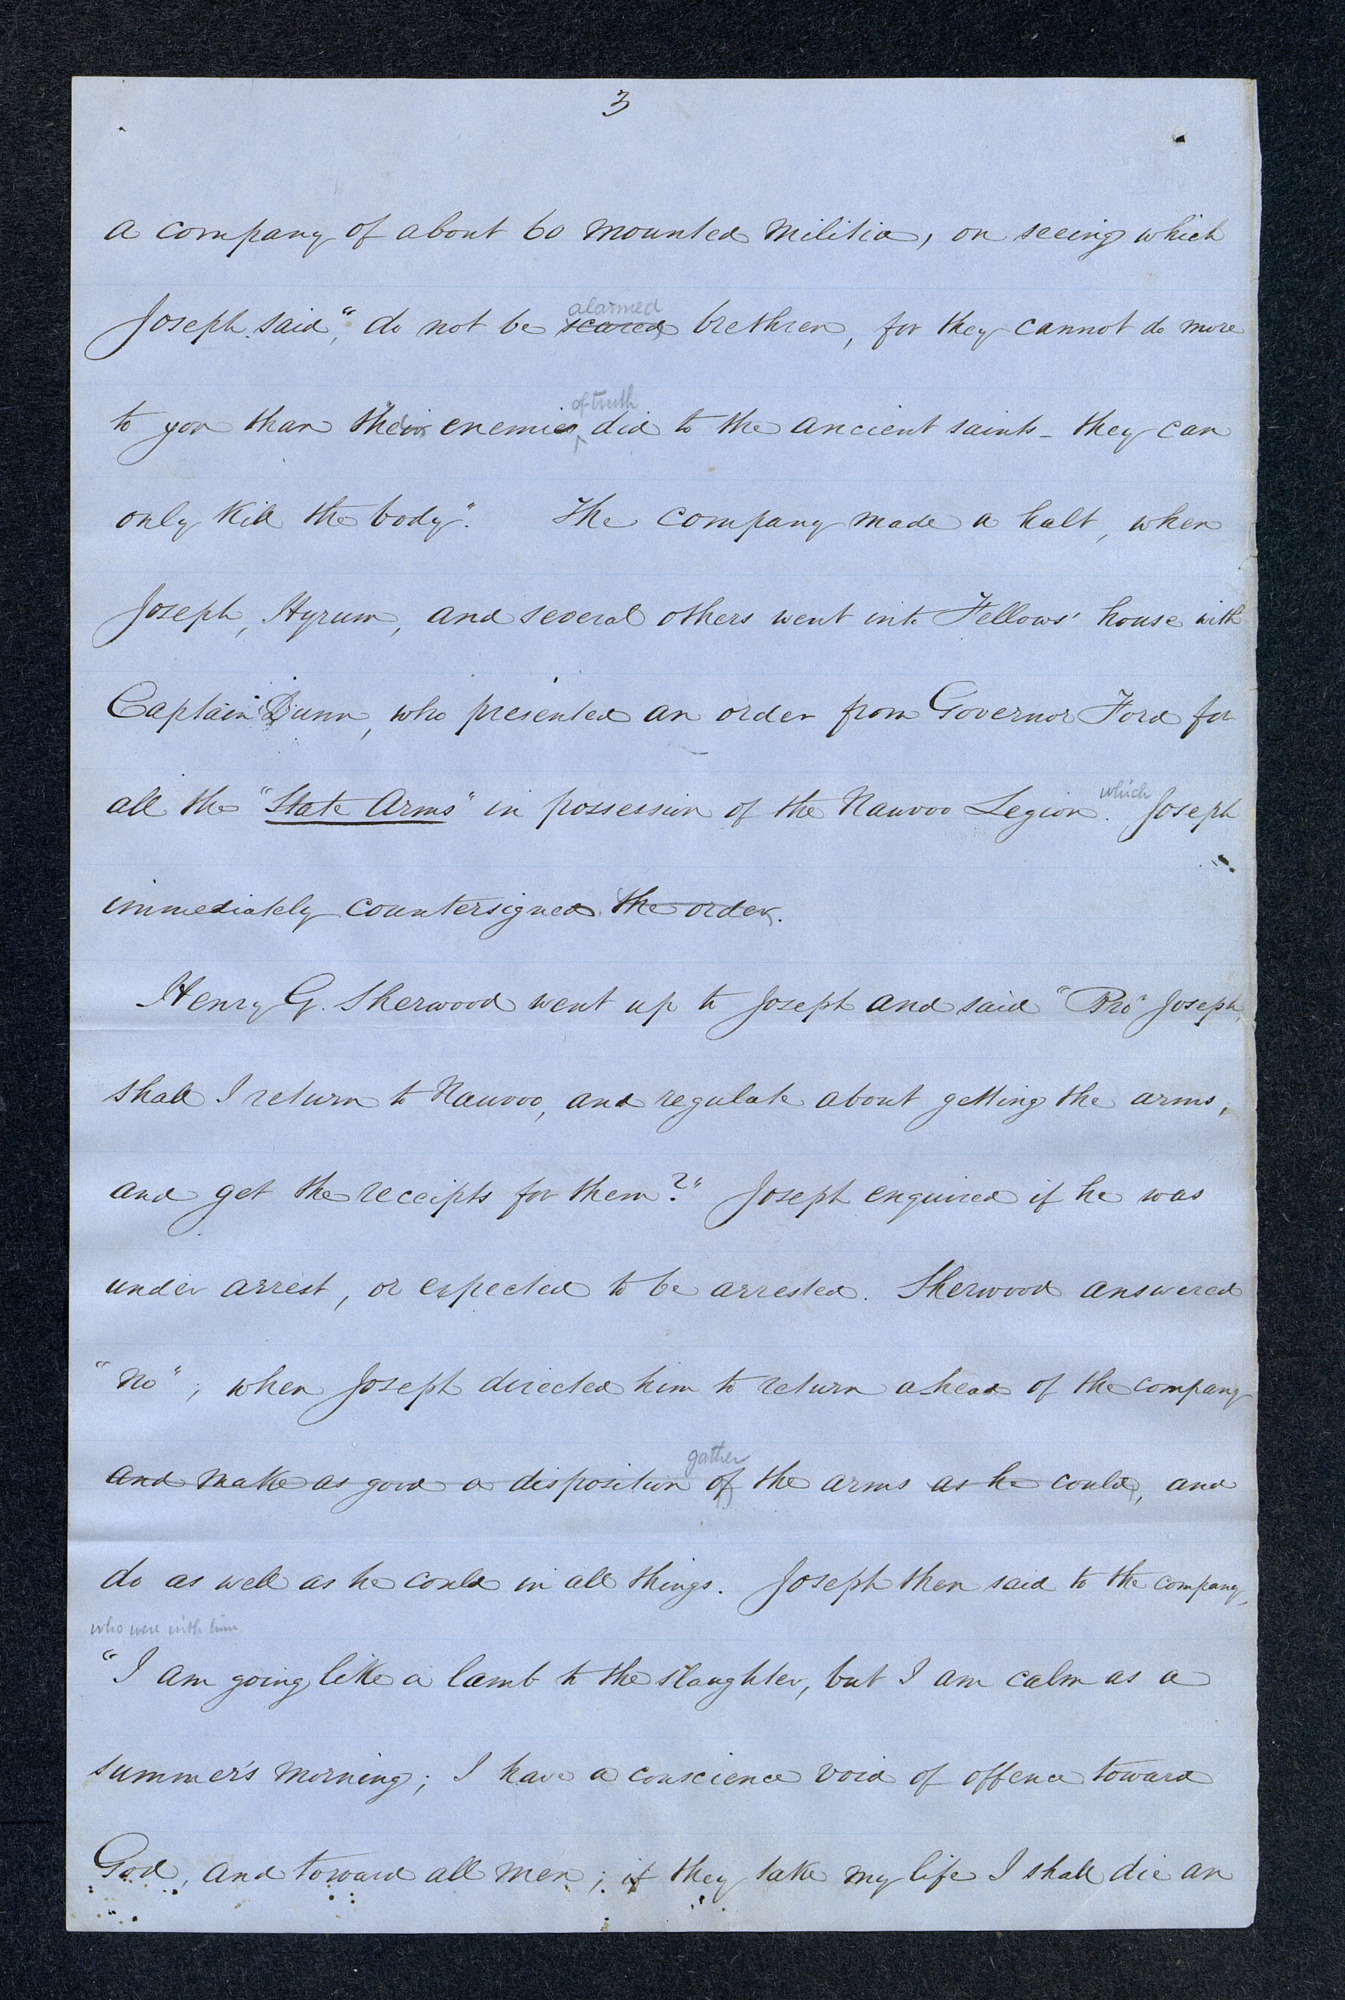 3
a company of about 60 mounted militia, on seeing which
alarmed
Joseph said, "do not be scared brethren, for they cannot do more
of truth
to you than their enemies did to the ancient saints - they can
only kill the body". The company made a halt, when
Joseph, Hyrum, and several others went into Fellows' house with
Captain Dunn, who presented an order from Governor Ford for
which
all the "State Arms" in possession of the Nauvoo Legion. Joseph
immediately countersigned the order.
Henry G. Sherwood went up to Joseph and said "Bro" Joseph,
shall I return to Nauvoo, and regulate about getting the arms,
and get the receipts for them?" Joseph enquired if he was
under arrest, or expected to be arrested. Sherwood answered
"no"; when Joseph directed him to return ahead of the company
gather
and make as good a disposition of the arms as he could, and
do as well as he could in all things. Joseph then said to the company,
who were with him
"I am going like a lamb to the slaughter, but I am calm as a
summer's morning; I have a conscience void of offence toward
God, and toward all men; if they take my life I shall die an